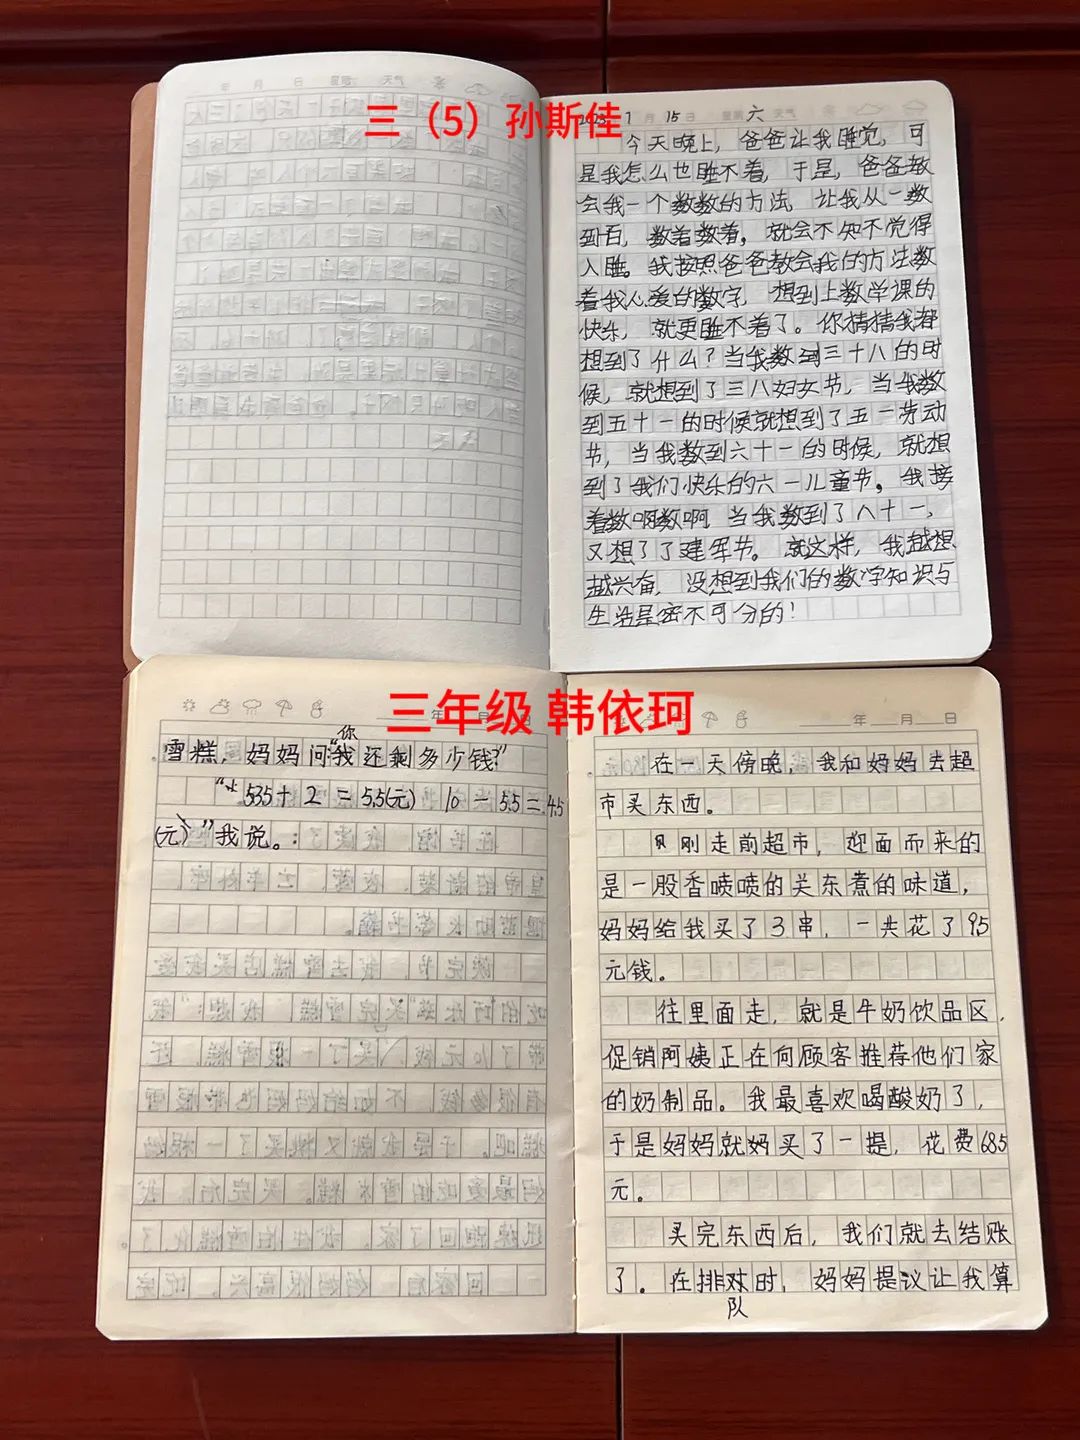 三（5）孙斯佳
年 月 日 星期 天气
2023 7月 15日 星期六 天气
今天晚上，爸爸让我睡觉，可
是我怎么也睡不着，于是，爸爸教
会我一个数数的方法，让我从一数
到百，数着数着，就会不知不觉得
入睡。我按照爸爸教会我的方法数
着我心爱的数字，想到上数学课的
快乐，就更睡不着了。你猜猜我都
想到了什么？当我数到三十八的时
候，就想到了三八妇女节，当我数
到五十一的时候就想到了五一劳动
节，当我数到六十一的时候，就想
到了我们快乐的六一儿童节。我接
着数啊数啊，当我数到了八十一，
又想了了建军节。就这样，我越想
越兴奋，没想到我们的数学知识与
生活是密不可分的！
三年级 韩依珂
年 月 日
雪糕，妈妈问“我还剩多少钱？”
你
5.35+2=5.5(元) 10-5.5=4.5
(元)”我说。：
年 月 日
在一天傍晚，我和妈妈去超
市买东西。
刚走前超市，迎面而来的
是一股香喷喷的关东煮的味道，
妈妈给我买了3串，一共花了9.5
元钱。
往里面走，就是牛奶饮品区，
促销阿姨正在向顾客推荐他们家
的奶制品。我最喜欢喝酸奶了，
于是妈妈就妈买了一提，花费68.5
元。
买完东西后，我们就去结账
了。在排对时，妈妈提议让我算
队